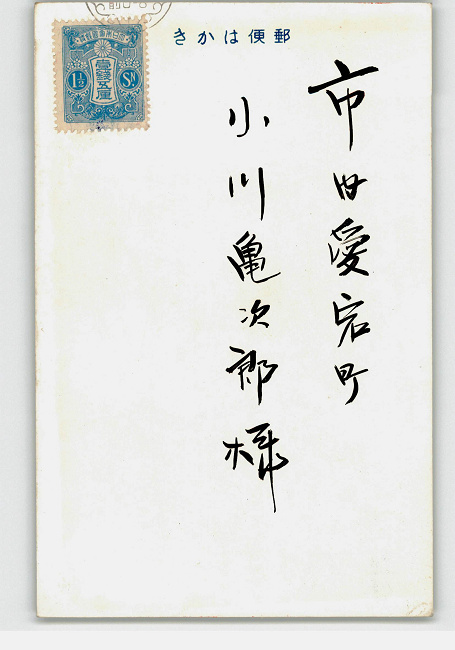 きかは便郵
市内愛宕町
小川亀次郎様
大日本帝國郵便
壹錢五厘
1½ Sn
前0-8